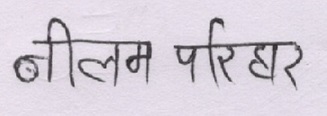 नीलम परिहार